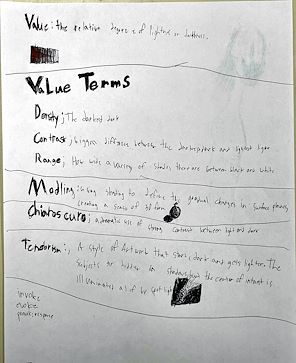 Value: the relative degree of lightness or darkness.
Value Terms
Density; The darkest dark
Contrast; biggest difference between the darkest dark and lightest light
Range; How wide a variety of shades there are between black and white
Modling: using shading to define the gradual changes in surface planes,
creating a sense of 3D form
Chiaroscuro; a dramatic use of strong contrast between light and dark
Tenebrism:, A style of Artwork that starts dark and gets lighter. The
subjects are hidden in shadows but the center of interest is
illuminated as if by spot light
invoke
evoke